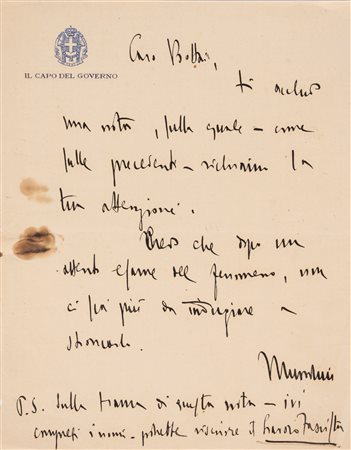 IL CAPO DEL GOVERNO
Caro Bottai,
ti accludo
una nota, sulla quale - come
sulle precedenti - richiamo la
tua attenzione.
Credo che dopo un
attento esame del fenomeno, non
ci sia più da indugiare a
stroncarlo.
Mussolini
P.S. Sulla trama di questa nota - ivi
compresi i nomi - potrebbe riuscire il Lavoro Fascista